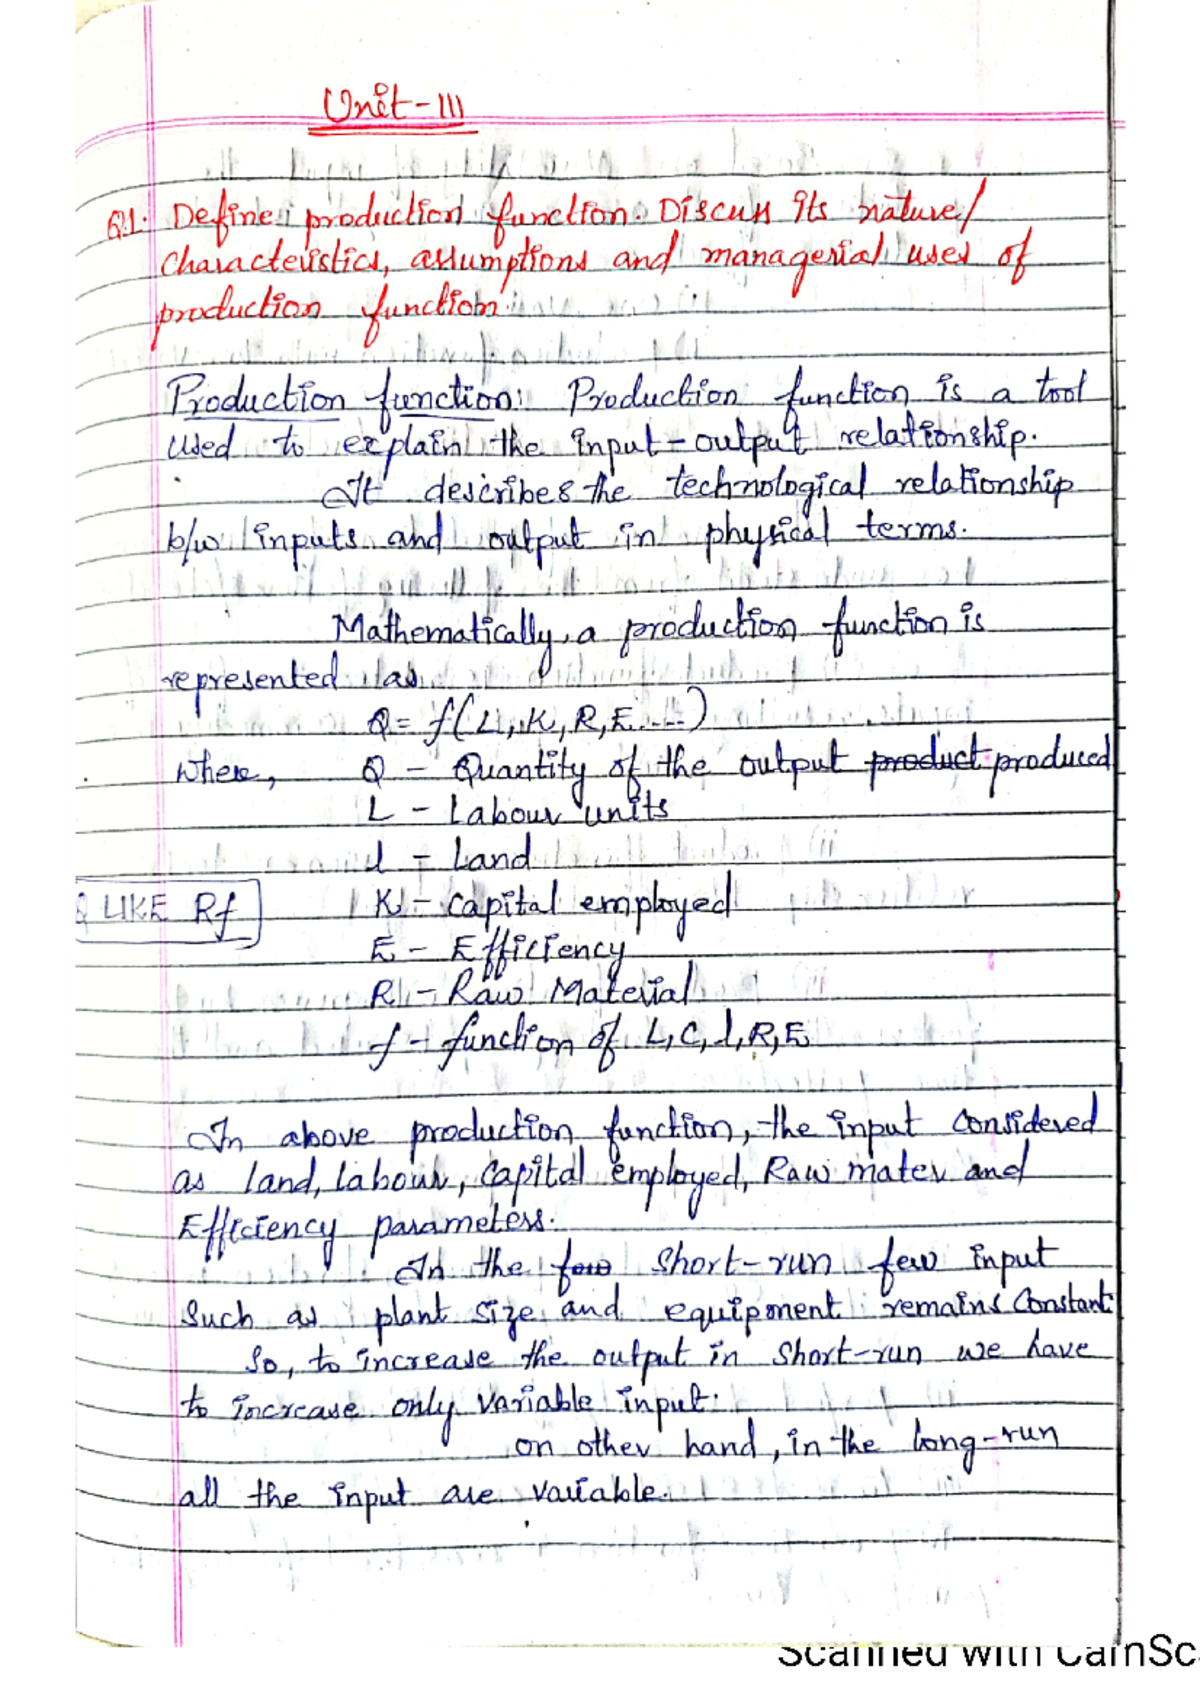 Unit-III
Q1. Define production function. Discuss its nature/
characteristics, assumptions and managerial uses of
production function.
Production function: Production function is a tool
used to explain the input-output relationship.
It describes the technological relationship
b/w inputs and output in physical terms.
Mathematically, a production function is
represented as
Q = f(L, K, R, E ....)
where, Q - Quantity of the output product produced
L - Labour units
l - Land
Q LIKE Rf K - Capital employed
E - Efficiency
R - Raw Material
f - function of L, C, l, R, E
In above production function, the input considered
as land, labour, capital employed, Raw mater and
Efficiency parameters.
In the few short-run few input
such as plant size and equipment remains constant
So, to increase the output in short-run we have
to increase only variable input.
on other hand, in the long-run
all the input are variable.
Scanned with CamSc